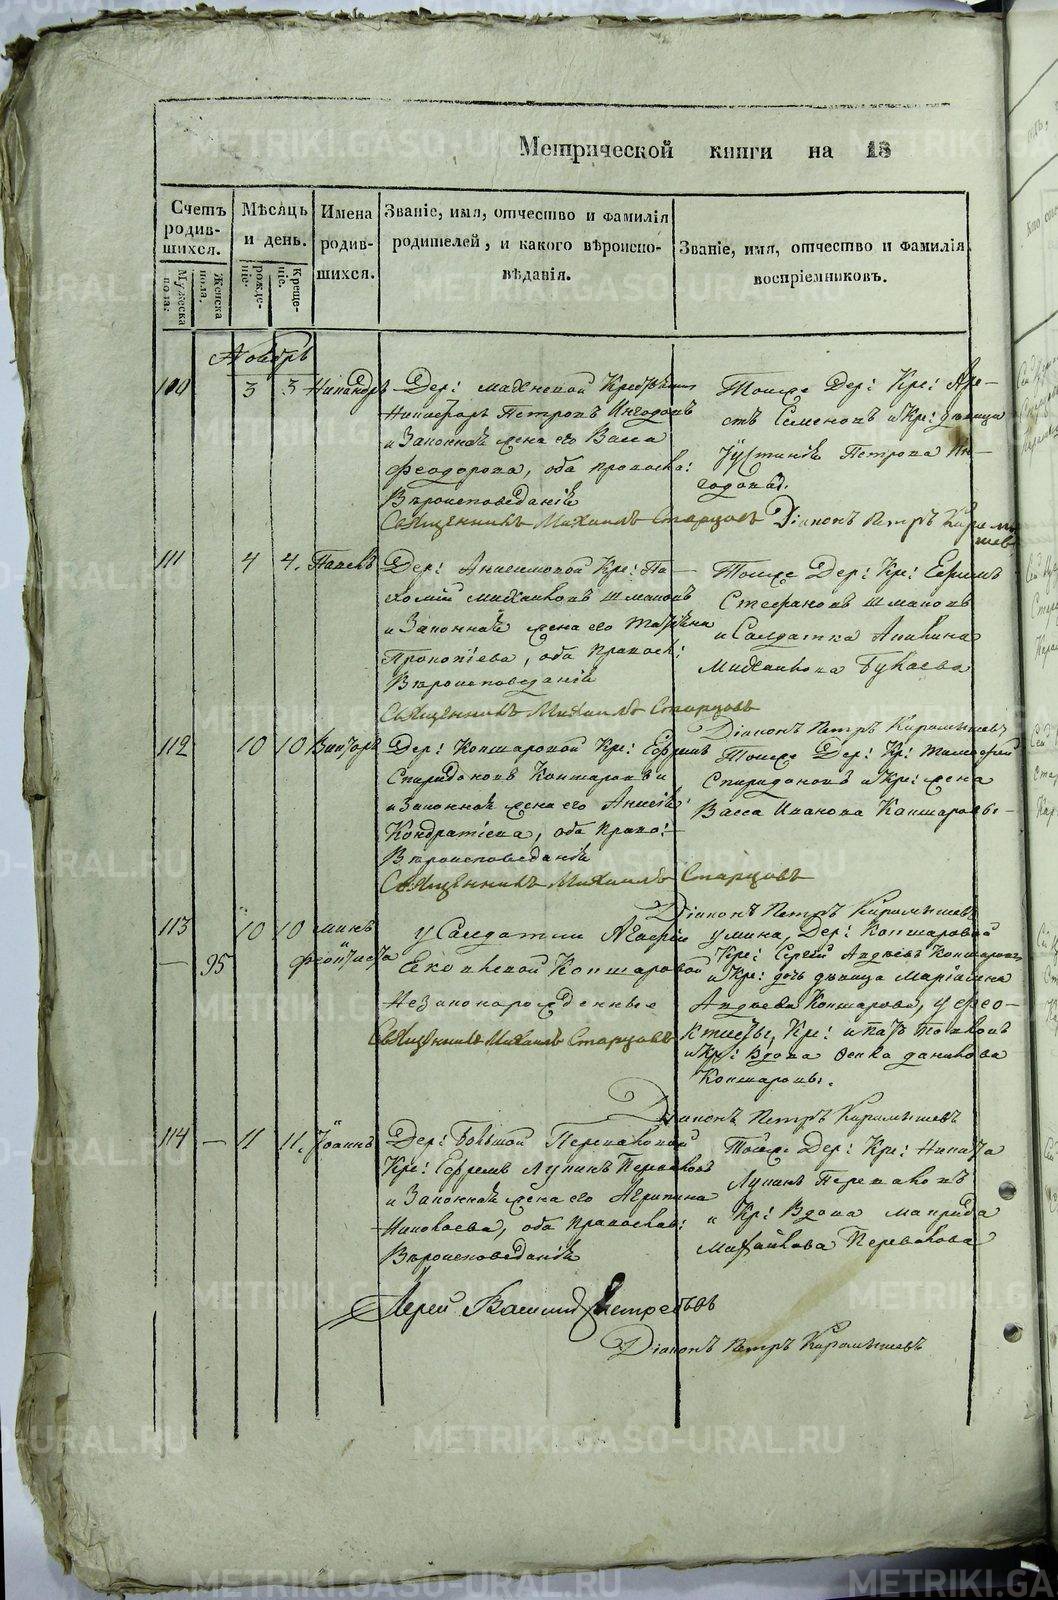 Метрической книги на 18
Счетъ родив-шихся.
Мужеска пола.
Женска пола.
Мѣсяцъ и день.
рожде-ніе.
Креще-ніе.
Имена родив-шихся.
Званіе, имя, отчество и фамилія
родителей, и какого вѣроиспо-
вѣданія.
Званіе, имя, отчество и фамилія
воспріемниковъ.
Ноябрь
110 3 3 Никандръ
Дер: Махневой
Никифоръ Петровъ
и Законная жена его Васса
Феодорова, оба Православ:
Вѣроисповеданія
Священникъ Михаилъ Старцовъ
Тойже Дер: Кре:
Семеновъ и Кре: дѣвица
Іустинія Петрова
Діаконъ Петръ Карамышевъ
111 4 4. Павелъ
Дер: Анисимовой Кре: Па-
хомій Михаиловъ Шмаковъ
и Законная жена его Татіяна
Прокопіева, оба Правосл:
Вѣроисповеданія
Священникъ Михаилъ Старцовъ
Тойже Дер: Кре: Ефримъ
Стефановъ Шмаковъ
и Салдатка Акилина
Михаилова Букаева
Діаконъ Петръ Карамышевъ
112 10 10 Викторъ
Дер: Кокшаровой Кре: Ефримъ
Спиридоновъ Кокшаровъ
и Законная жена его Анисія
Кондратіева, оба Право:
Вѣроисповеданія
Священникъ Михаилъ Старцовъ
Тойже Дер: Кр: Тимофей
Спиридоновъ и Кре: жена
Васса Иванова Кокшаровы.
Діаконъ Петръ Карамышевъ
113 10 10 Минъ
— 95 и Феоктиста
У Салдатки Агафіи
Кокшаровой
Незаконорожденные
Священникъ Михаилъ Старцовъ
у Мина, Дер: Кокшаровой
Кре: Сергій Авдѣевъ Кокшаровъ
и Кре: дочь дѣвица Маріамна
Авдѣева Кокшарова, у Фео-
ктисты, Кре: Игнатъ
и Кр: Вдова Фекла Данилова
Кокшаровы.
Діаконъ Петръ Карамышевъ
114 — 11 11. Іоаннъ
Дер: Большой Переваловой
Кре: Ефремъ Лукинъ Переваловъ
и Законная жена его Агрипина
Николаева, оба Православ:
Вѣроисповеданія
Тойже Дер: Кре: Никита
Лукинъ Переваловъ
и Кр: Вдова Маврида
Михайлова Перевалова
Іерей Василій Ястребовъ
Діаконъ Петръ Карамышевъ
METRIKI.GASO-URAL.RU